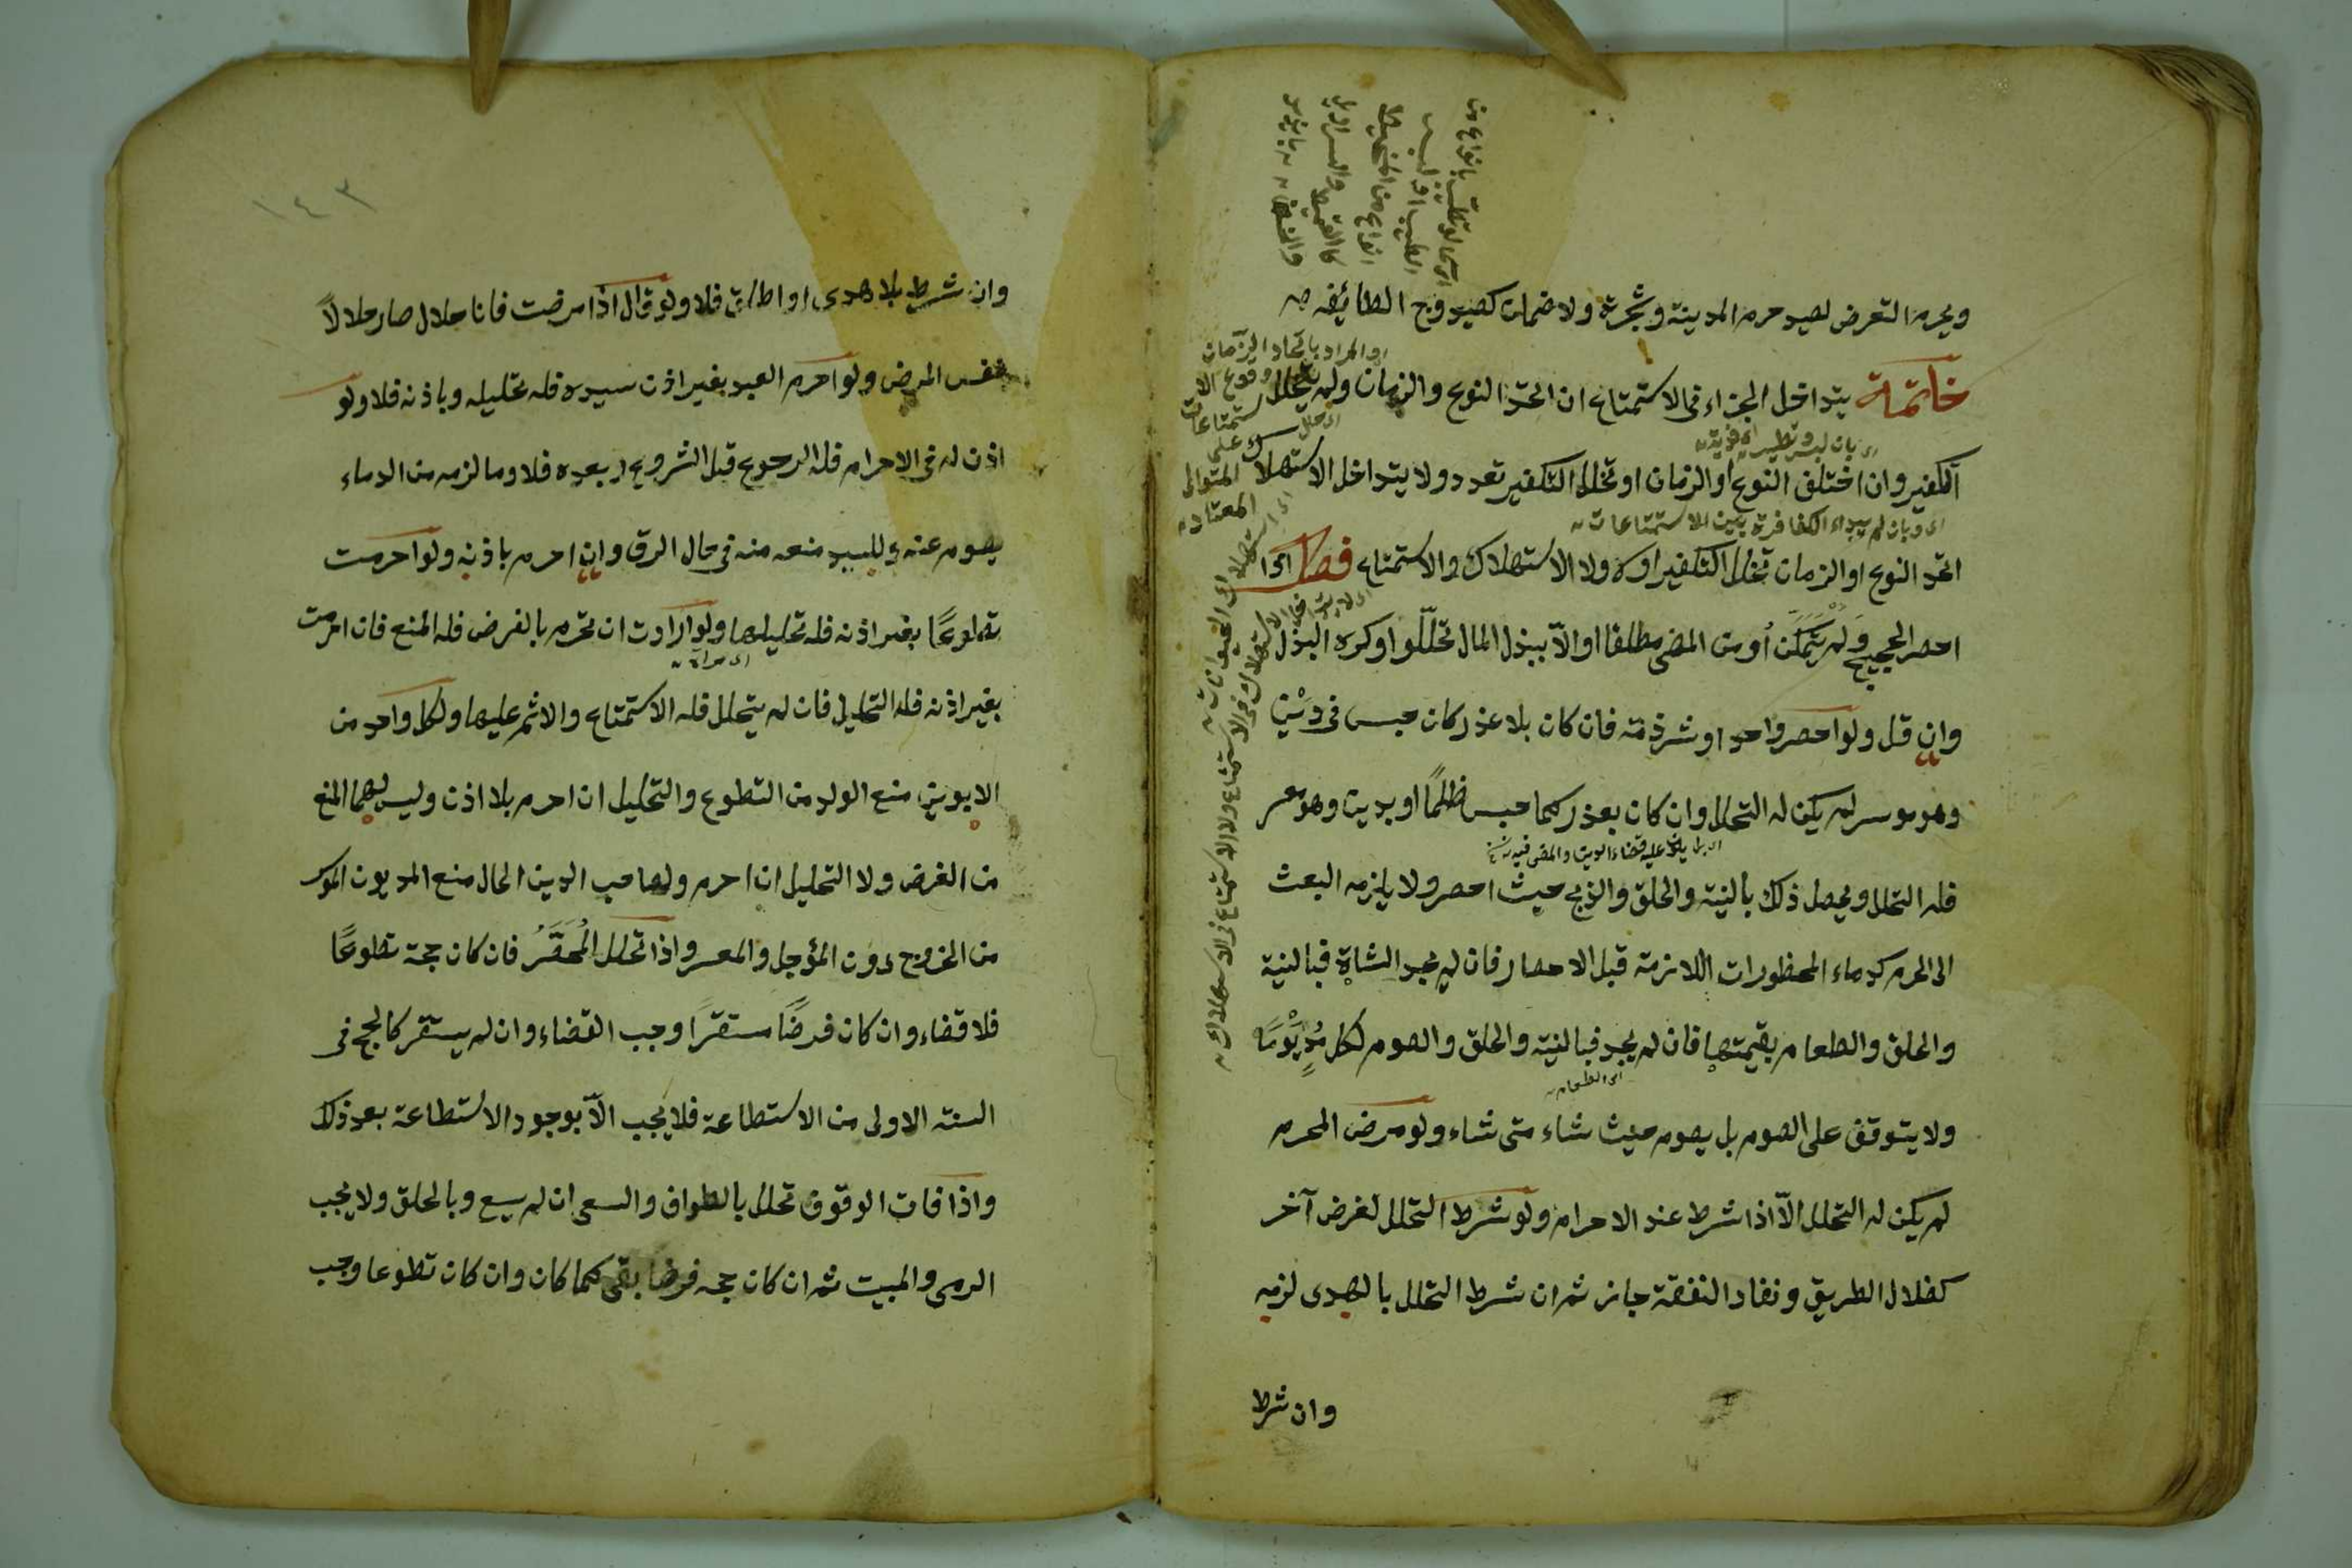 ويحرم التعرض لصيد حرم المدينة وشجره ولا ضمان كصيد وج الطائف
خاتمة يتداخل الجزاء فى الاستمتاع ان اتحد النوع والزمان ولم يتخلل
التكفير وان اختلف النوع او الزمان او تخلل التكفير تعدد ولا يتداخل الاستهلاك
اتحد النوع او الزمان تخلل التكفير او لا ولا الاستهلاك والاستمتاع فصل اذا
احصر الحجيج ولم يتمكن من المضى مطلقا او الّا ببذل المال تحلّلوا وكره البذل
وان قل ولو احصر واحد او شرذمة فان كان بلا عذر كان حبس فى دَيْن
وهو موسر لم يكن له التحلل وان كان بعذر كما حبس ظلمًا او بدين وهو معسر
فله التحلل ويحصل ذلك بالنية والحلق والذبح حيث احصر ولا يلزمه البعث
الى الحرم كدماء المحظورات اللازمة قبل الاحصار فان لم يجد الشاة فبالنية
والحلق والطعام بقيمتها فان لم يجد فبالنية والحلق والصوم لكل مُدٍ يَوْمًا
ولا يتوقف على الصوم بل يصوم حيث شاء متى شاء ولو مرض المحرم
لم يكن له التحلل الّا اذا شرط عند الاحرام ولو شرط التحلل لغرض آخر
كضلال الطريق ونفاد النفقة جاز ثم ان شرط التحلل بالهدى لزمه
وان شرط
اى وبان لم يبدء الكفارة بين الاستمتاعات
اى الطعام
١٤٣
وان شرط بلا هدى او اطلق فلا ولو قال اذا مرضت فانا حلال صار حلالاً
بنفس المرض ولو احرم العبد بغير اذن سيده فله تحليله وباذنه فلا ولو
اذن له فى الاحرام فله الرجوع قبل الشروع لا بعده فلا وما لزمه من الدماء
يصوم عنه وللسيد منعه منه فى حال الرق وان احرم باذنه ولو احرمت
تطوعًا بغير اذنه فله تحليلها ولو ارادت ان تحرم بالفرض فله المنع فان احرمت
بغير اذنه فله التحليل فان لم يتحلل فله الاستمتاع والاثم عليها ولكل واحد من
الابوين منع الولد من التطوع والتحليل ان احرم بلا اذن وليس لهما المنع
من الفرض ولا التحليل ان احرم ولصاحب الدين الحال منع المديون الموسر
من الخروج دون المؤجل والمعسر واذا تحلل المُحصَرُ فان كان حجة تطوعًا
فلا قضاء وان كان فرضًا مستقرًا وجب القضاء وان لم يستقر كالحج فى
السنة الاولى من الاستطاعة فلا يجب الّا بوجود الاستطاعة بعد ذلك
واذا فات الوقوف تحلل بالطواف والسعى ان لم يسع وبالحلق ولا يجب
الرمى والمبيت ثم ان كان حجه فرضا بقى كما كان وان كان تطوعا وجب